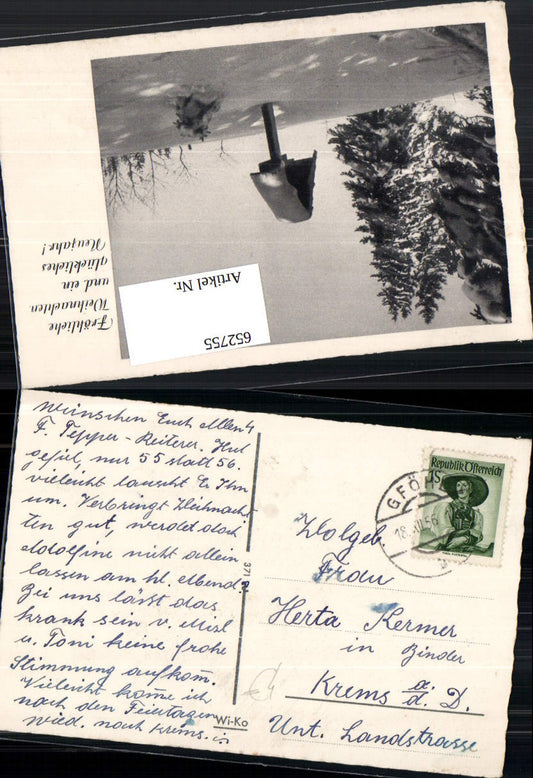 Fröhliche
Weihnachten
und ein
glückliches
Neujahr!
Artikel Nr.
652755
wünschen Euch Allen
F. Tepper - Reiterer. Hut
gefiel, nur 55 statt 56.
vieleicht tauscht E. Ihn
um. Verbringt Weihnach
ten gut, werdet doch
Adolfine nicht allein
lassen am hl. Abend.
Bei uns lässt das
krank sein v. Mizl
u. Toni keine frohe
Stimmung aufkom̄.
Vieleicht kom̄e ich
nach den Feiertagen
wied. nach Krems.
371
Wi-Ko
Republik Österreich
1S
GFÖ
18.XII.56
Wolgeb.
Frau
Herta Kermer
in Binder
Krems a. d. D.
Unt. Landstrasse